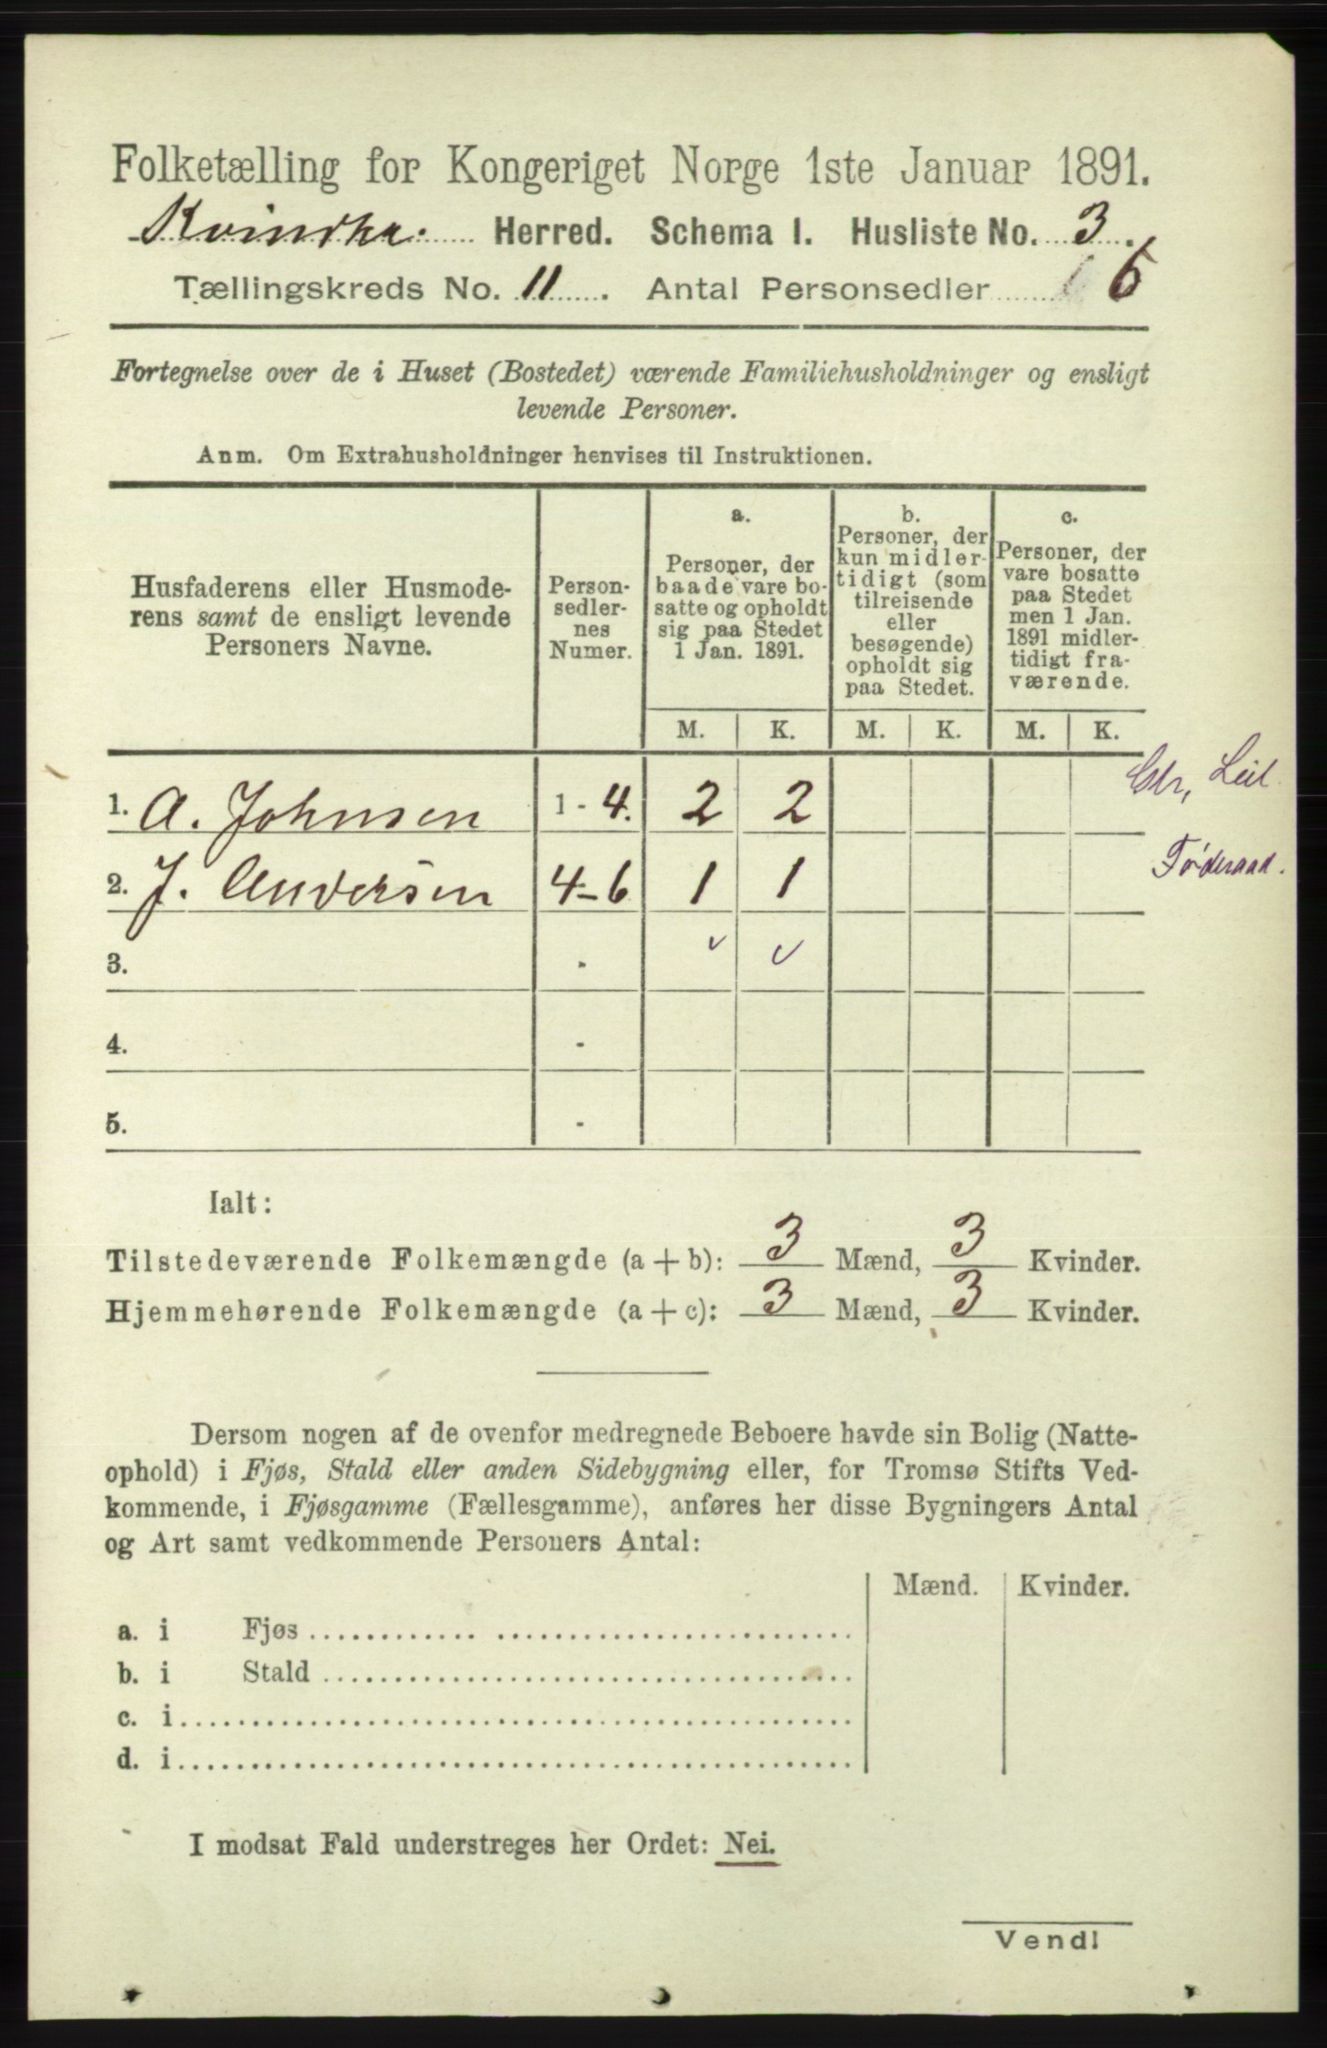 Folketælling for Kongeriget Norge 1ste Januar 1891.
Kvindhr. Herred. Schema I. Husliste No. 3.
Tællingskreds No. 11. Antal Personsedler 6
Fortegnelse over de i Huset (Bostedet) værende Familiehusholdninger og ensligt
levende Personer.
Anm. Om Extrahusholdninger henvises til Instruktionen.
Husfaderens eller Husmode-
rens samt de ensligt levende
Personers Navne.
Person-
sedler-
nes
Numer.
a.
Personer, der
baade vare bo-
satte og opholdt
sig paa Stedet
1 Jan. 1891.
b.
Personer, der
kun midler-
tidigt (som
tilreisende
eller
besøgende)
opholdt sig
paa Stedet.
c.
Personer, der
vare bosatte
paa Stedet
men 1 Jan.
1891 midler-
tidigt fra-
værende.
M. K. M. K. M. K.
1. A. Johnsen 1-4. 2 2 Leil.
2. J. Andersen 4-6 1 1 Føderaad.
3. -
4. -
5. -
Ialt:
Tilstedeværende Folkemængde (a+b): 3 Mænd, 3 Kvinder.
Hjemmehørende Folkemængde (a+c): 3 Mænd, 3 Kvinder.
Dersom nogen af de ovenfor medregnede Beboere havde sin Bolig (Natte-
ophold) i Fjøs, Stald eller anden Sidebygning eller, for Tromsø Stifts Ved-
kommende, i Fjøsgamme (Fællesgamme), anføres her disse Bygningers Antal
og Art samt vedkommende Personers Antal:
Mænd. Kvinder.
a. i Fjøs
b. i Stald
c. i
d. i
I modsat Fald understreges her Ordet: Nei.
Vend!